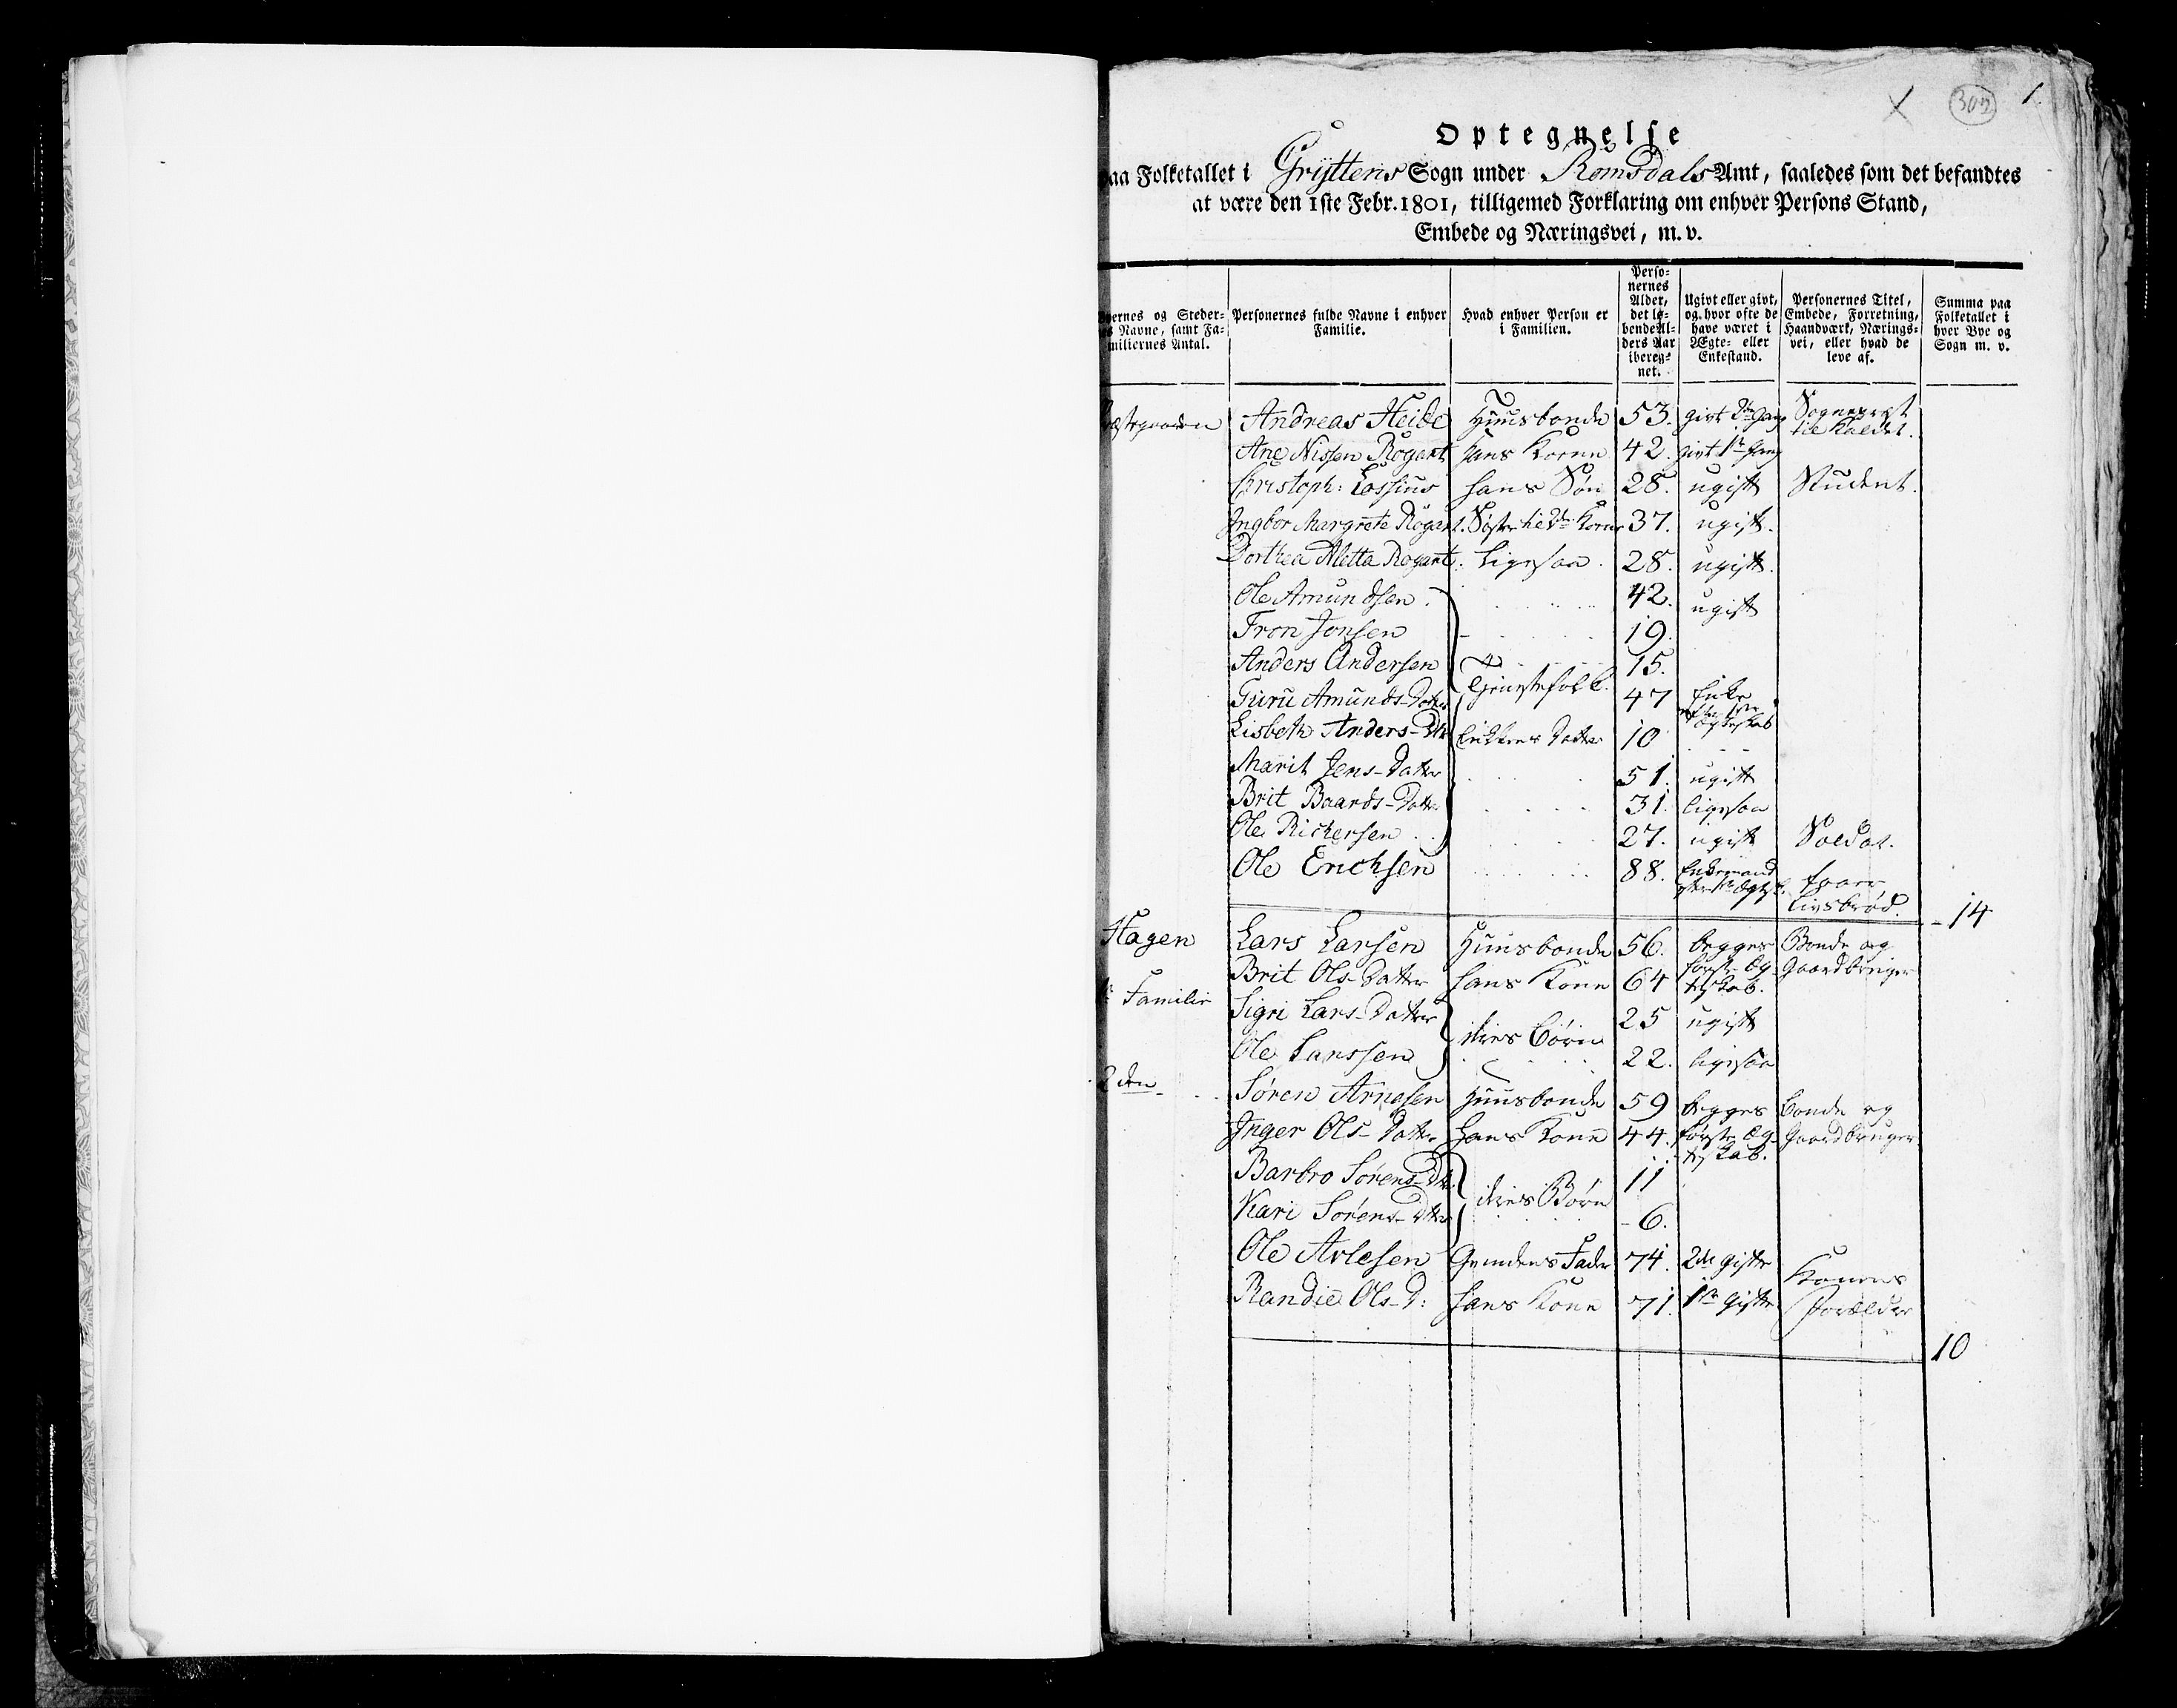 1.
305
Optegnelse
paa Folketallet i Gryttens Sogn under Romsdals Amt, saaledes som det befandtes
at være den 1ste Febr. 1801, tilligemed Forklaring om enhver Persons Stand,
Embede og Næringsvei, m. v.
Byernes og Steder-
es Navne, samt Fa-
miliernes Antal.
Personernes fulde Navne i enhver
Familie.
Hvad enhver Person er
i Familien.
Perso-
nernes
Alder,
det lø-
bende Al-
ders Aar
ibereg-
net.
Ugivt eller givt,
og hvor ofte de
have været i
Ægte- eller
Enkestand.
Personernes Titel,
Embede, Forretning,
Haandværk, Nærings-
vei, eller hvad de
leve af.
Summa paa
Folketallet i
hver Bye og
Sogn m. v.
Præstegaarden Andreas Heide Huusbonde 53. givt 2den Gang Sognepræst
til Kaldet.
Ane Nissen Rogart hans Kone 42. givt 1te Gang
Christoph: Lossius hans Søn 28. ugift Student.
Ingbor Margrete Rogart. Søster til Konen 37. ugift.
Dorthea Aletta Rogart. ligesaa. 28. ugift.
Ole Amundsen. 42. ugift
Tron Jonsen 19.
Anders Andersen 15.
Tienestefolk.
Guru Amunds-Datter 47 Enke
efter 1ste
Ægteskab
Lisbeth Anders-Dtr Enkens Datter 10
Marit Jens-Datter 51. ugift
Brit Baards-Datter 31. ligesaa
Ole Richersen 27. ugift Soldat.
Ole Erichsen 88. Enkemand
faaer
Livsbrød.
14
Hagen Lars Larsen Huusbonde 56. begges Bonde og
Brit Ols-Datter hans Kone 64 første Æg- Gaardbruger
teskab.
1te Familie Sigri Lars-Datter 25 ugift
deres Børn
Ole Larssen 22. ligesaa
2den Søren Arnesen Huusbonde 59 begges Bonde og
Inger Ols-Datter hans Kone 44. første Æg- Gaardbruger
teskab.
Barbro Sørens-Dtr. 11
deres Børn
Kari Sørens-Dtter 6.
Ole Arlesen Qvindens Fader 74. 2de gifte
Konens
Randie Ols-D: hans Kone 71. 1te gifte Forældre
10